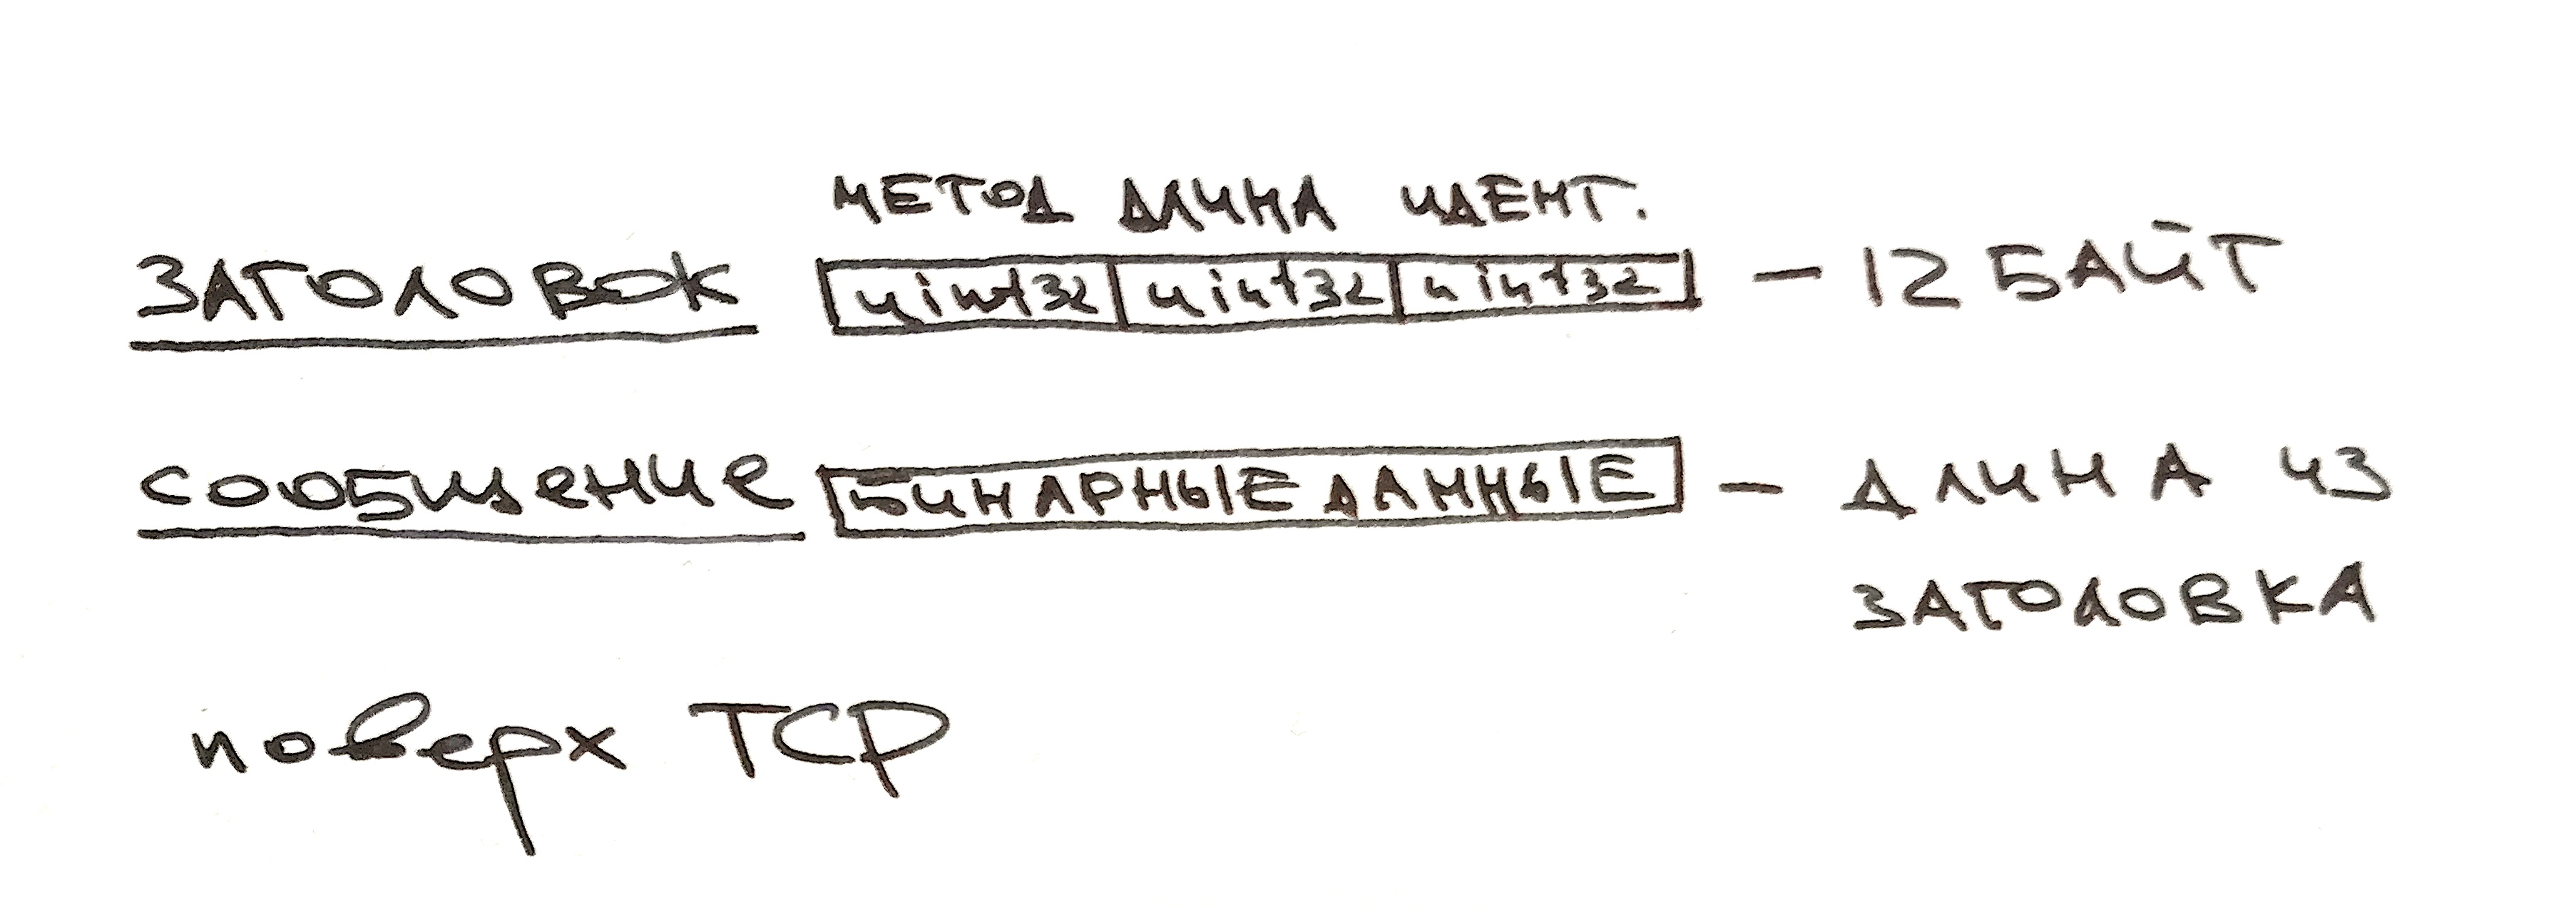 МЕТОД ДЛИНА ИДЕНТ.
ЗАГОЛОВОК uint32 uint32 uint32 — 12 БАЙТ
СООБЩЕНИЕ БИНАРНЫЕ ДАННЫЕ — ДЛИНА ИЗ
ЗАГОЛОВКА
поверх TCP